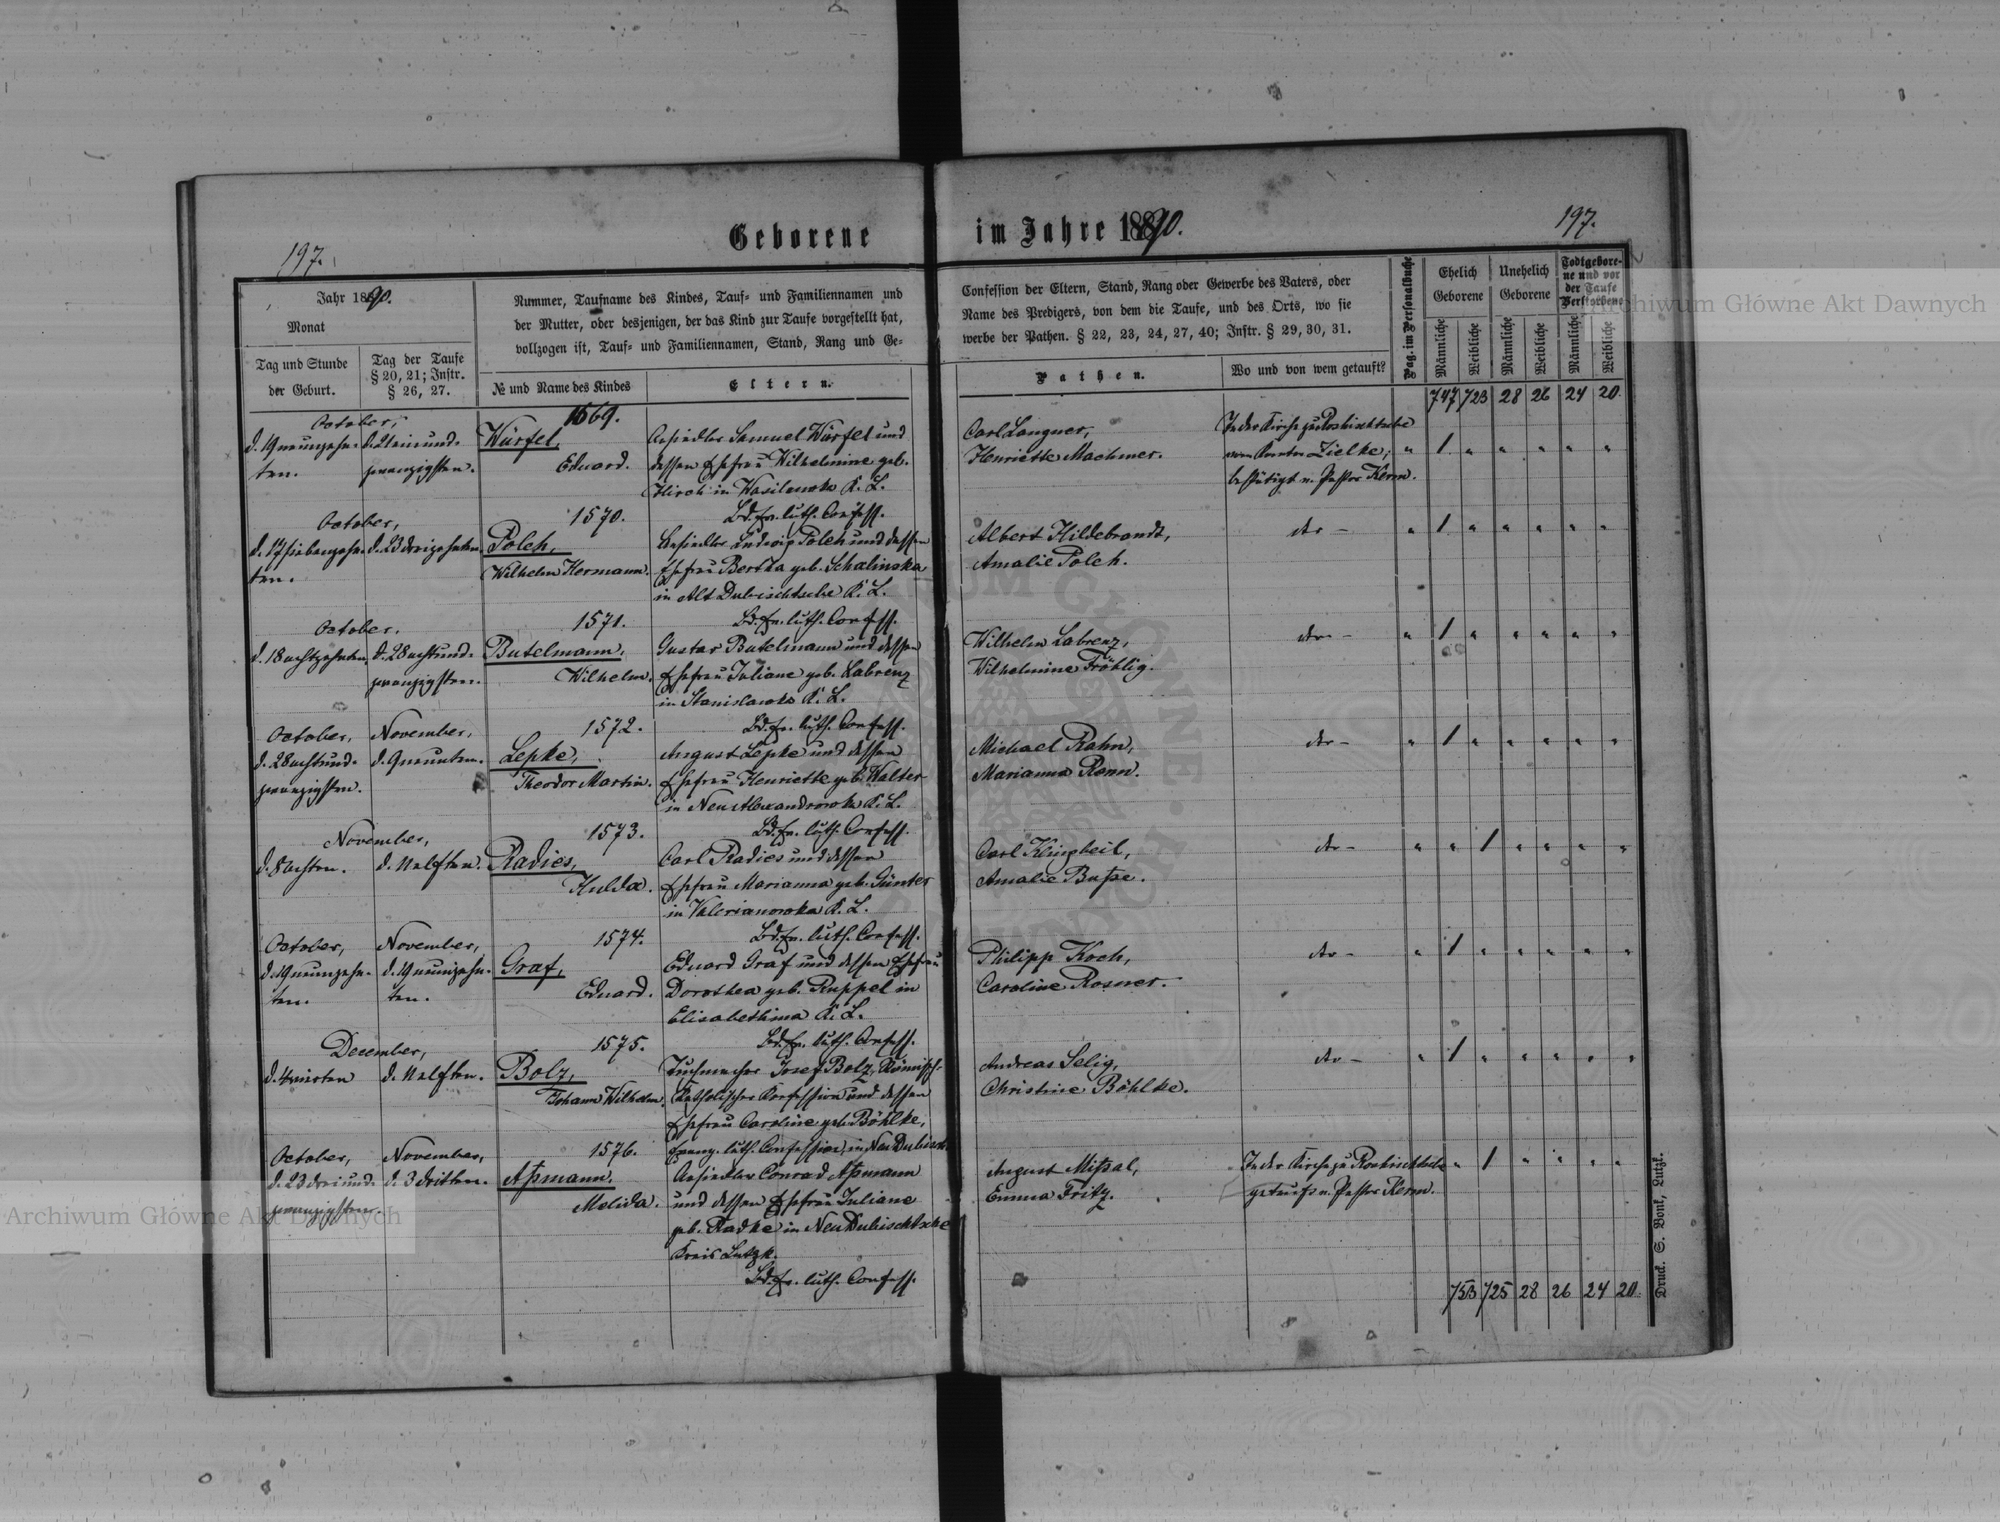 197.
Geborene
im Jahre 1890.
197.
Jahr 1890.
Monat
Tag und Stunde
der Geburt.
Tag der Taufe
§ 20, 21; Instr.
§ 26, 27.
Nummer, Taufname des Kindes, Tauf= und Familiennamen und
der Mutter, oder desjenigen, der das Kind zur Taufe vorgestellt hat,
vollzogen ist, Tauf= und Familiennamen, Stand, Rang und Ge=
№ und Name des Kindes
Eltern.
Confession der Eltern, Stand, Rang oder Gewerbe des Vaters, oder
Name des Predigers, von dem die Taufe, und des Orts, wo sie
werbe der Pathen. § 22, 23, 24, 27, 40; Instr. § 29, 30, 31.
Pathen.
Wo und von wem getauft?
Pag. im Personalbuche
Ehelich
Geborene
Unehelich
Geborene
Todtgebore=
ne und vor
der Taufe
Verstorbene
Männliche
Weibliche
Männliche
Weibliche
Männliche
Weibliche
747 723 28 26 24 20
October,
d. 19 neunzehn-
ten.
zwanzigsten.
1569.
Würfel,
Eduard.
Ansiedler Samuel Würfel und
dessen Ehefrau Wilhelmine geb.
Hirch in Wasilewka K. L.
Bd. Ev. luth. Confess.
Carl Langner,
Henriette Machmer.
In der Kirche zu Roshischtsche
vom Kantor Zielke,
bestätigt v. Pastor Kerm.
" 1 " " " " "
October,
d. 17 siebenzehn-
ten.
1570.
Polch,
Wilhelm Hermann.
Ansiedler Ludwig Polch und dessen
Ehefrau Bertha geb. Schalinska
in Alt Dubischtsche K. L.
Bd. Ev. luth. Confess.
Albert Hildebrandt,
Amalie Polch.
dto –
" 1 " " " " "
October.
d. 18 achtzehnten
d. 28 achtund-
zwanzigsten.
1571.
Butelmann,
Wilhelm.
Gustav Butelmann und dessen
Ehefrau Juliane geb. Labrenz
in Stanislawka K. L.
Bd. Ev. luth. Confess.
Wilhelm Labrenz,
Wilhelmine Fröhlig.
dto –
" 1 " " " " "
October,
d. 28 achtund-
zwanzigsten.
November,
d. 9 neunten.
1572.
Lepke,
Theodor Martin.
August Lepke und dessen
Ehefrau Henriette geb. Walter
in Neu Alexandrowka K. L.
Bd. Ev. luth. Confess.
Michael Rahn,
Marianna Renn.
dto –
" 1 " " " " "
November,
d. 8 achten.
d. 11 elften.
1573.
Radies,
Hulda.
Carl Radies und dessen
Ehefrau Marianna geb. Günter
in Valerianowka K. L.
Bd. Ev. luth. Confess.
Carl Klingbeil,
Amalie Buße.
dto –
" " 1 " " " "
October,
d. 19 neunzehn-
ten.
November,
d. 19 neunzehn-
ten.
1574.
Graf,
Eduard.
Eduard Graf und dessen Ehefrau
Dorothea geb. Ruppel in
Elisabethina K. L.
Bd. Ev. luth. Confess.
Philipp Koch,
Caroline Rosner.
dto –
" 1 " " " " "
December,
d. 4 vierten
d. 11 elften.
1575.
Bolz,
Johann Wilhelm.
Tuchmacher Josef Bolz, Römisch-
Katholischer Konfession und dessen
Ehefrau Caroline geb. Böhlke,
Evang. luth. Confession, in Neu Dubischt.
Andreas Selig,
Christine Böhlke.
dto –
" 1 " " " " "
October,
d. 23 dreiund-
zwanzigsten.
November,
d. 3 dritten.
1576.
Aßmann,
Melida.
Ansiedler Conrad Aßmann
und dessen Ehefrau Juliane
geb. Radke in Neu Dubischtsche
Kreis Lutzk.
Bd. Ev. luth. Confess.
August Mißal,
Emma Fritz.
In der Kirche zu Roshischtsche
getauft v. Pastor Kerm.
" 1 " " " "
753 725 28 26 24 20
Druck. S. Bonk, Lutzk.
Archiwum Główne Akt Dawnych
Archiwum Główne Akt Dawnych